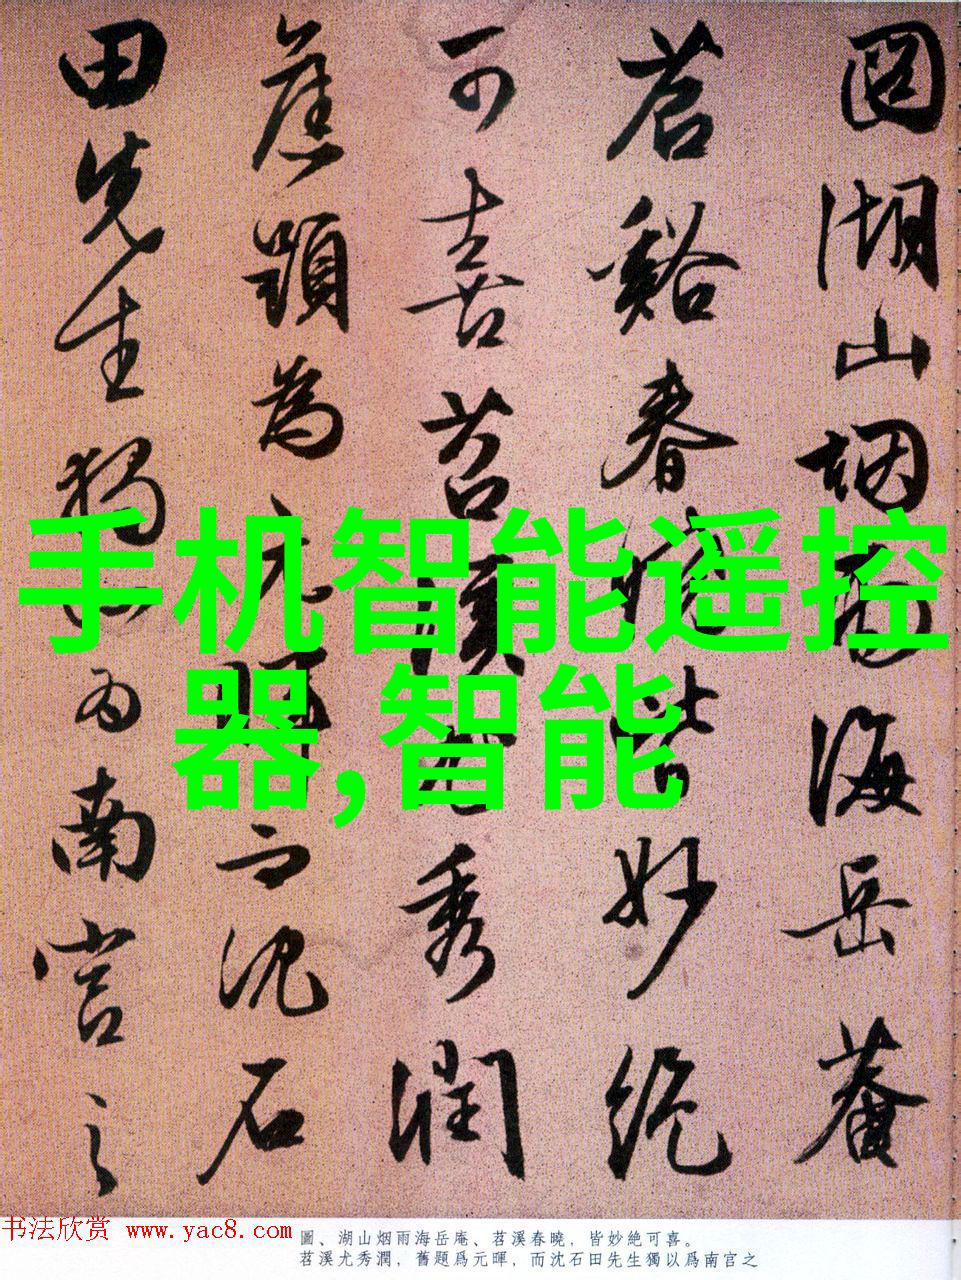 圖湖山烟雨海岳菴
苕谿春曉皆妙絶
可喜苕溪尤秀潤
舊題為元暉而沈石
田先生獨以為南宫之
手机智能遥控
器,智能
书法欣赏 www.yac8.com
圖、湖山烟雨海岳庵、苕溪春曉，皆妙絶可喜。
苕溪尤秀潤，舊題爲元暉，而沈石田先生獨以爲南宫之